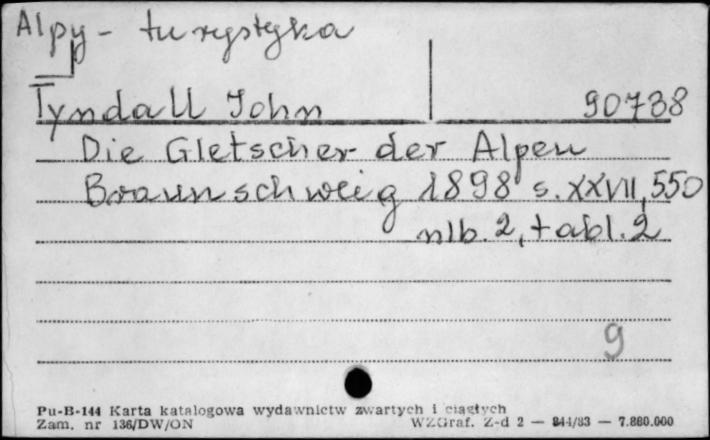 Alpy - turystyka
Tyndall John 90738
Die Gletscher der Alpen
Braunschweig 1898 s. XXVII, 550
nlb. 2, tabl. 2
9
Pu-B-144 Karta katalogowa wydawnictw zwartych i ciągłych
Zam. nr 136/DW/ON WZGraf. Z-d 2 — 844/83 — 7.880.000